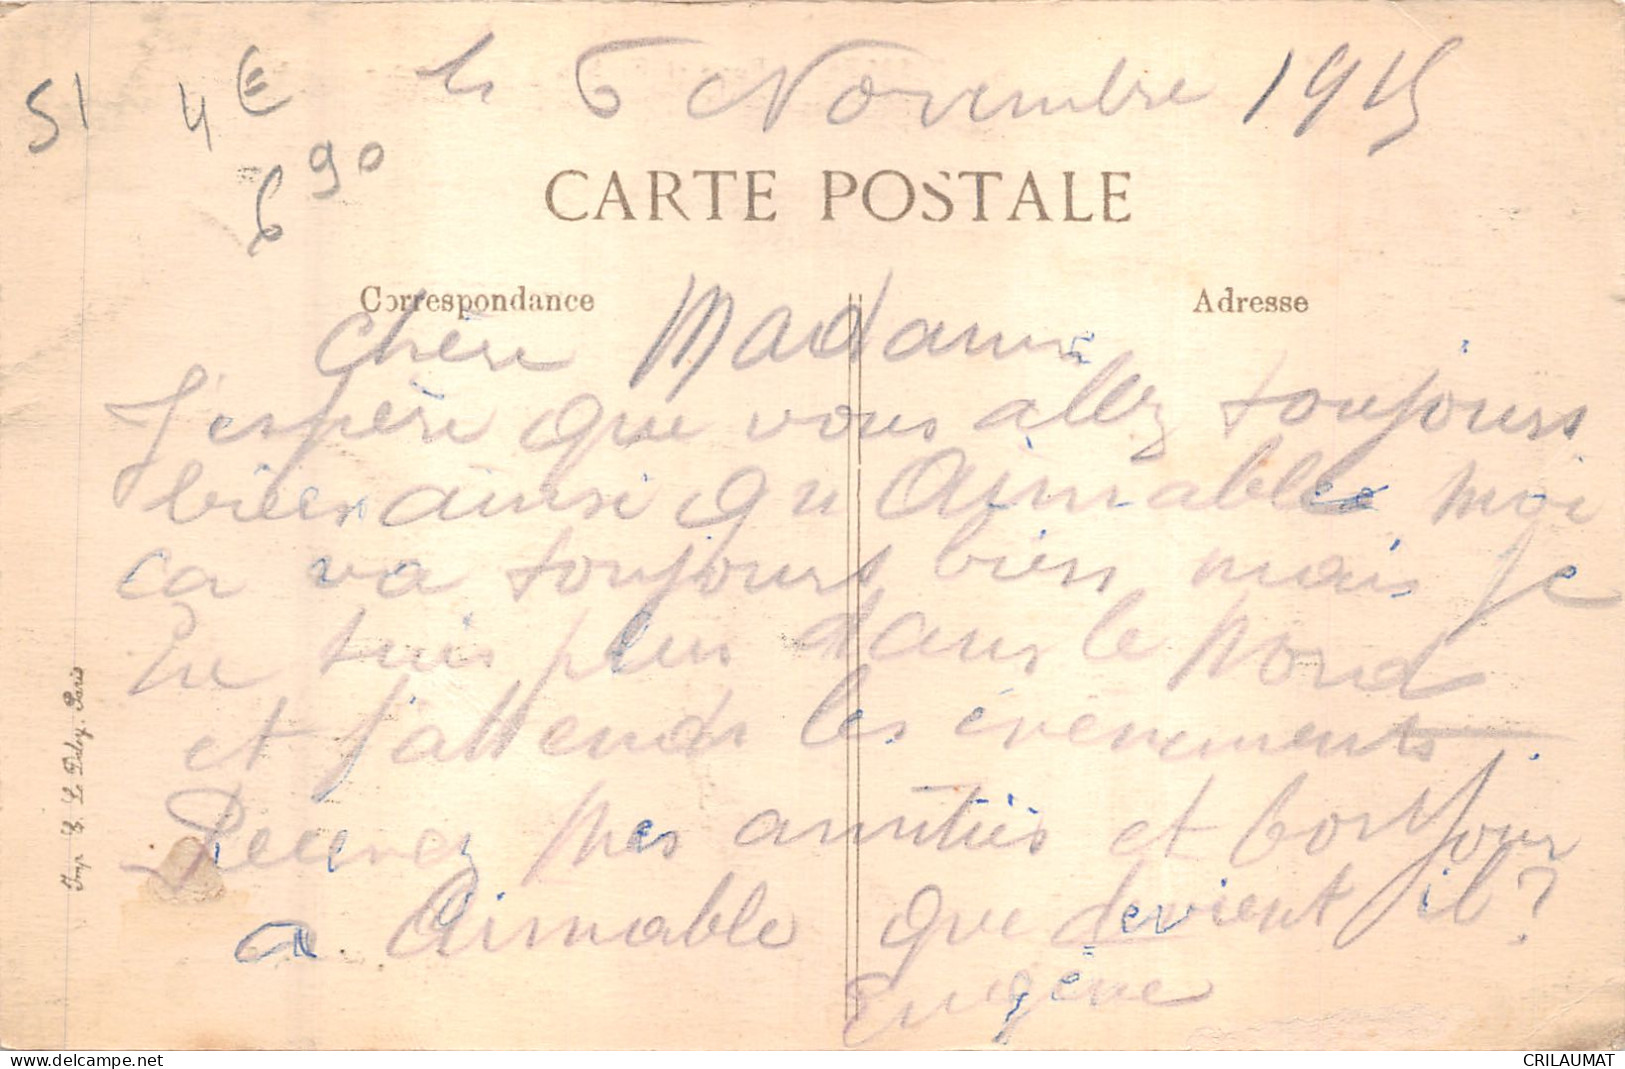 le 6 Novembre 1915
51
4€
6 90
CARTE POSTALE
Correspondance
Adresse
Chère Madame
J'espère que vous allez toujours
bien ainsi qu Aimable moi
ca va toujours bien mais je
ne suis plus dans le Nord
et j'attends les évènements
Recevez mes amitiés et bonjour
a Aimable que devient il?
Eugène
Imp. E. Le Deley, Paris
delcampe.net
CRILAUMAT